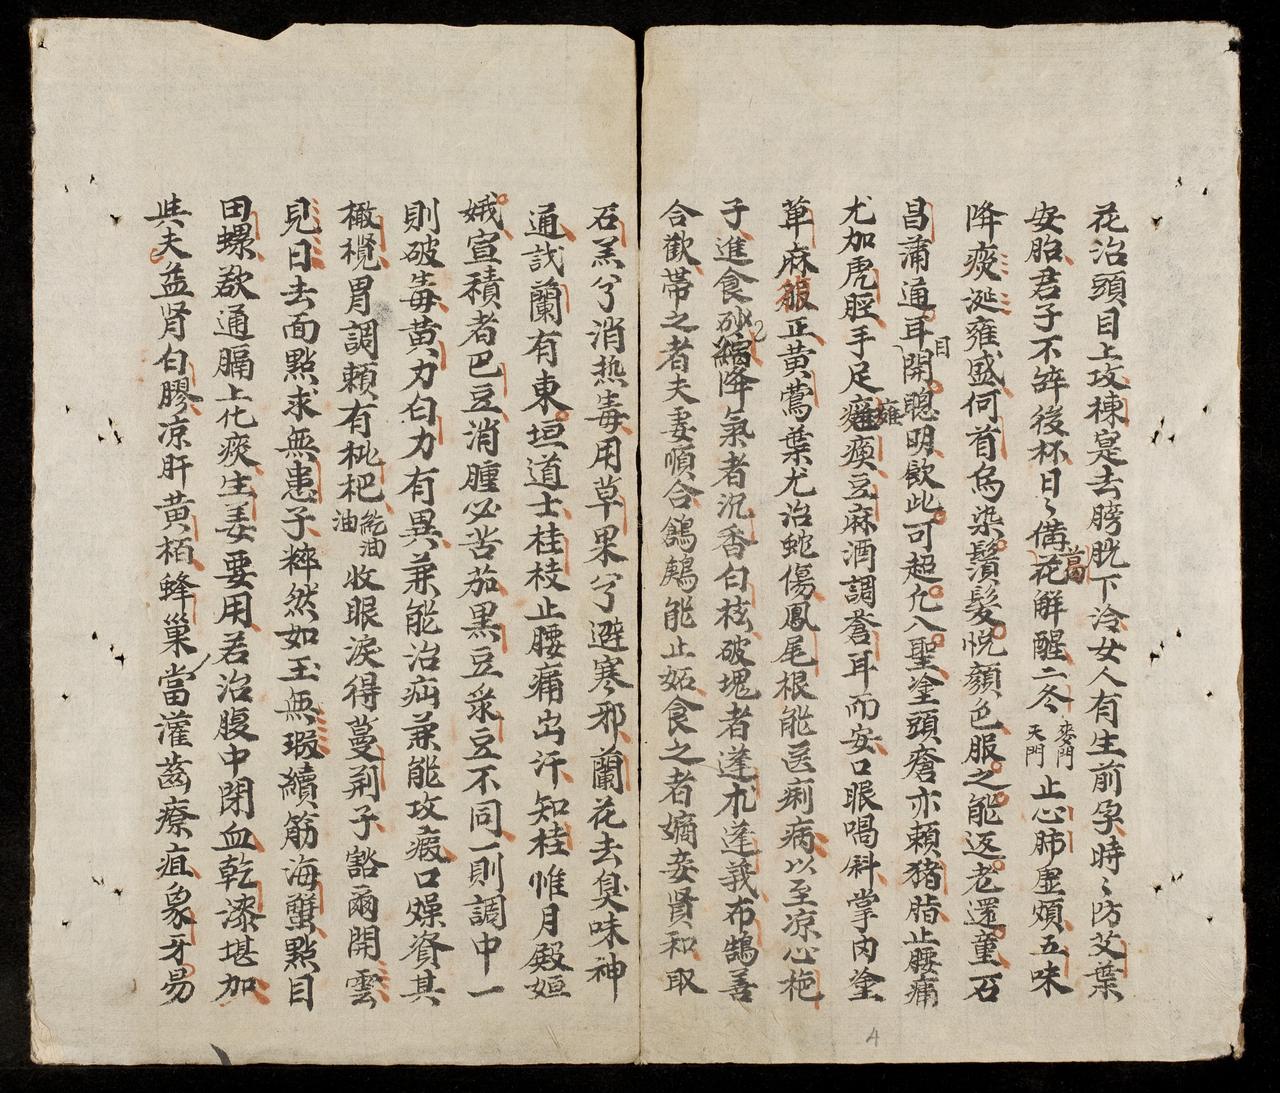 花治頭目上攻棟寔去膀胱下冷女人有生前孕時〻防艾葉
安胎君子不辞後杯日〻備花葛解醒二冬麥門天門止心肺虛煩五味
降痰涎雍盛何首烏染鬚髮悅顔色服之能返老還童石
昌蒲通耳目開聰明飲此可超允入聖塗頭瘡亦頼猪脂止腰痛
尤加虎脛手足癱瘓豆麻酒調蒼耳而安口眼喎斜掌內塗
萆麻服正黃鶯葉尤治蛇傷鳳尾根能医痢病以至凉心梔
子進食砂縮降氣者沉香白枝破塊者蓬朮蓬莪布鵠善
合歡帶之者夫妻順合鶬鶊能止妬食之者嫡妾賢和取
石羔兮消热毒用草果兮避寒邪蘭花去臭味神
通訍蘭有東垣道士桂枝止腰痛出汗知桂惟月殿姮
娥宣積者巴豆消腫必苦茄黑豆菉豆不同一則調中一
則破毒黃力白力有異兼能治疝兼能攻瘕口燥資其
橄欖胃調頼有枇杷油乾油收眼淚得蔓荆子豁爾開雲
見日去面點求無患子粹然如玉無瑕續筋海蟹點目
田螺欬通膈上化痰生姜要用若治腹中閉血乾漆堪加
與夫益肾白膠凉肝黃栢蜂巢當灌齒療疽象牙易